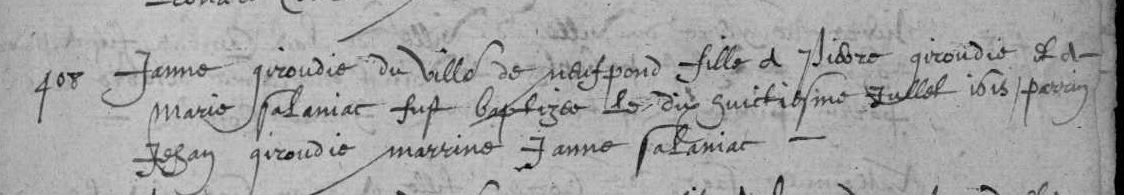 408 Janne giroudie du Villo de neufpond fille d pierre giroudie et d
marie salaniac fust baptizee le dix huictiesme Jullet 1615 / parrin
Jehan giroudie marrine Janne salaniac